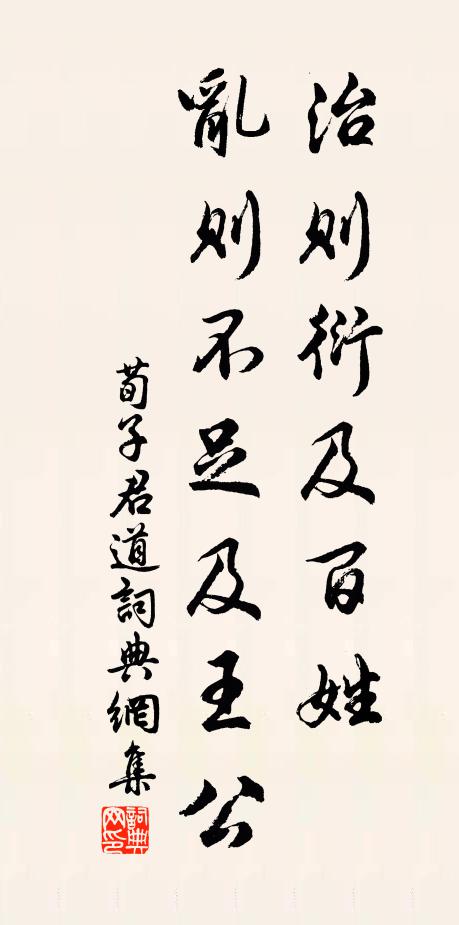 治则衍及百姓
亂则不足及王公
荀子君道詞典網集
詞典网印